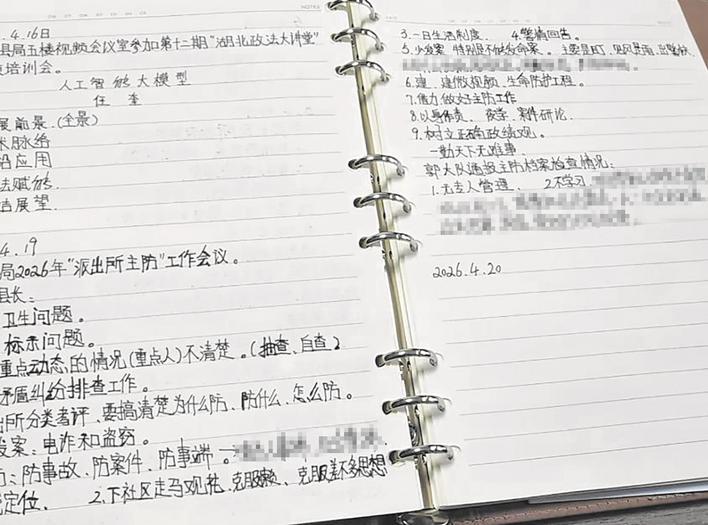 .4.16日
县局五楼视频会议室参加第十二期“湖北政法大讲堂”
培训会。
人工智能大模型
任 奎
展前景.(全景)
术脉络
沿应用
法赋能.
结展望.
4.19
局2026年“派出所主防”工作会议。
县长:
卫生问题。
标示问题。
重点动态的情况(重点人)不清楚。(抽查、自查)
矛盾纠纷排查工作。
出所分类考评、要搞清楚为什么防、防什么、怎么防。
发案:电诈和盗窃。
防事故、防案件、防事端。
定位、 2.下社区走马观花、克服懒、克服差不多思想
NOTES
3.一日生活制度. 4.警情回告。
5.少发案 特别是不能发命案。 主要是盯、
6.建 建微视频、生命防护工程。
7.借力做好主防工作
8.以身作责、 夜学、案件研论.
9.树立正确政绩观。
一勤天下无难事
郭大队通报主防档案检查情况:
1.无专人管理. 2.不学习.
2026.4.20